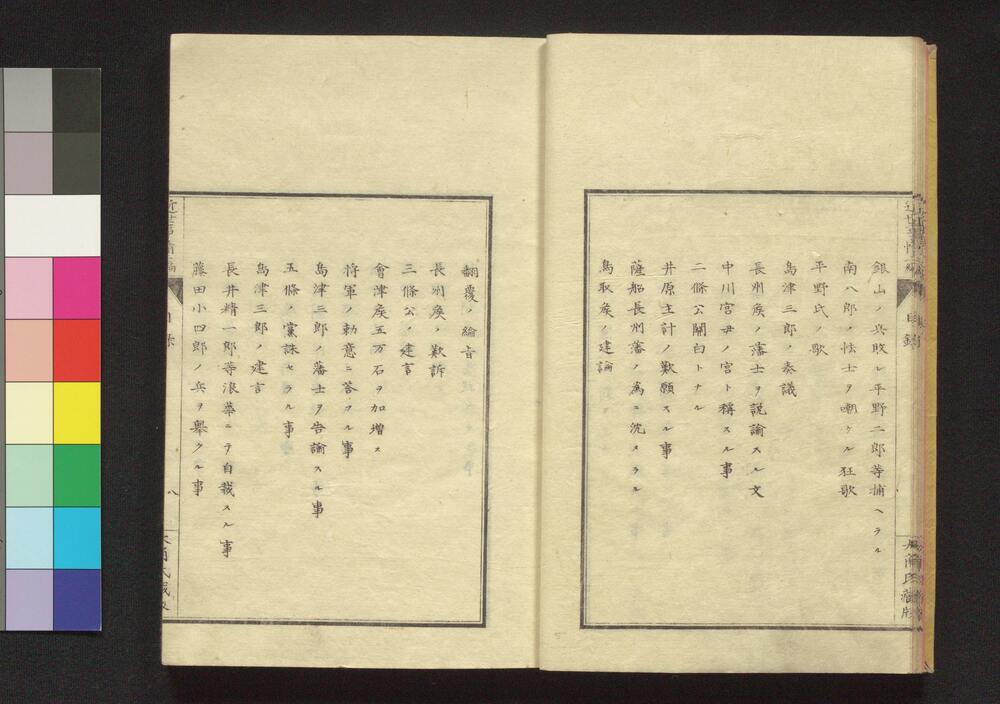 銀山ノ兵敗レ平野二郎等捕ヘラル
南八郎ノ怯士ヲ嘲ケル狂歌
平野氏ノ歌
島津三郎ノ奏議
長州矦ノ藩士ヲ説諭スル文
中川宮尹ノ宮ト稱スル事
二條公關白トナル
井原主計ノ歎願スル事
薩船長州藩ノ爲ニ沈メラル
鳥取矦ノ建論
翻覆ノ綸旨
長州矦ノ歎訴
三條公ノ建言
會津矦五万石ヲ加増ス
將軍ノ勅意ニ答フル事
島津三郎ノ藩士ヲ告諭スル事
五條ノ黨誅セラル事
島津三郎ノ建言
長井精一郎等浪華ニテ自裁スル事
藤田小四郎ノ兵ヲ擧クル事
八